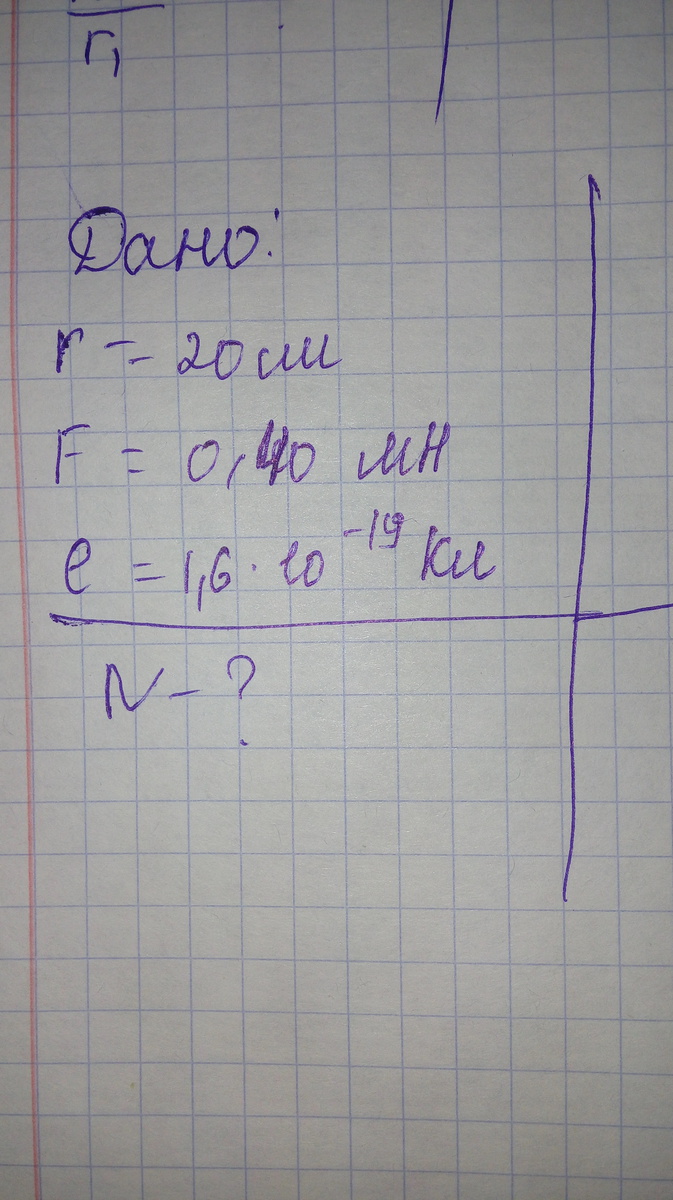 r₁
Дано:
r = 20 см
F = 0,40 мН
e = 1,6 · 10⁻¹⁹ Кл
N - ?